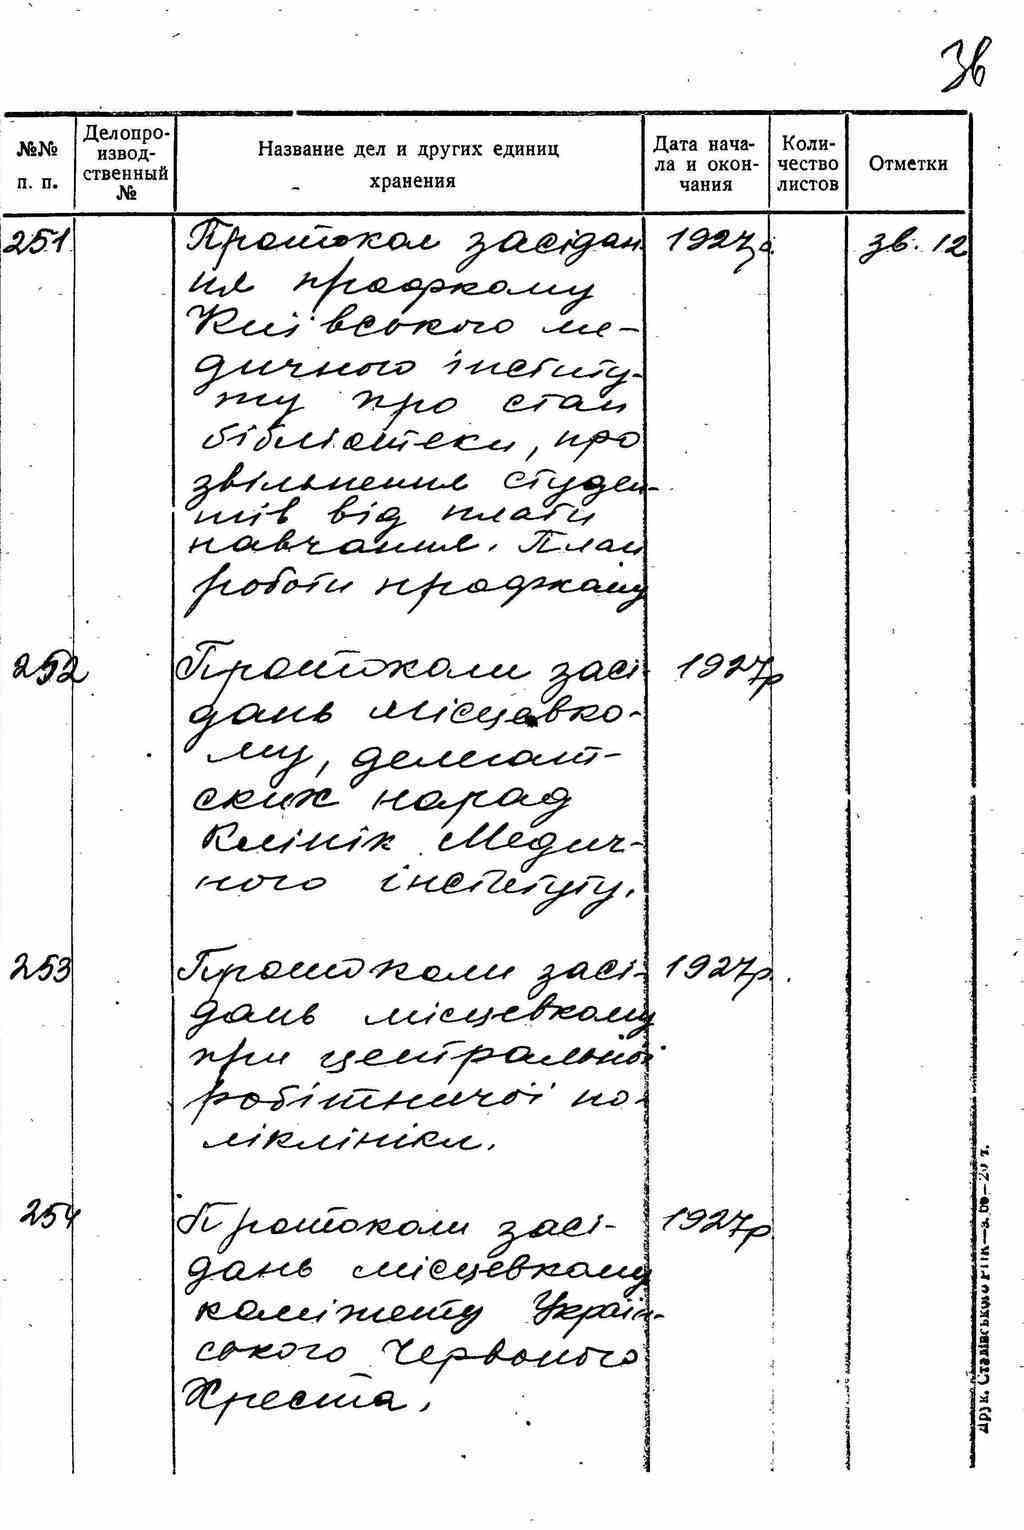 38
№№ п. п.
Делопро-
извод-
ственный
№
Название дел и других единиц
хранения
Дата нача-
ла и окон-
чания
Коли-
чество
листов
Отметки
251 Протокол засідан 1927р. зв. 12
ня профкому
Київського ме-
дичного інститу-
ту про стан
бібліотеки, про
звільнення студен-
тів від плати
навчання. План
роботи профкому
252 Протоколи засі- 1927р
дань місцевко-
му, делегат-
ських нарад
клінік Медич-
ного інституту.
253 Протоколи засі- 1927р.
дань місцевкому
при центральної
робітничої по-
ліклініки.
254 Протоколи засі- 1927р.
дань місцевкому
комітету Україн-
ського Червоного
Хреста.
Друк. Сталінського РПК—з.